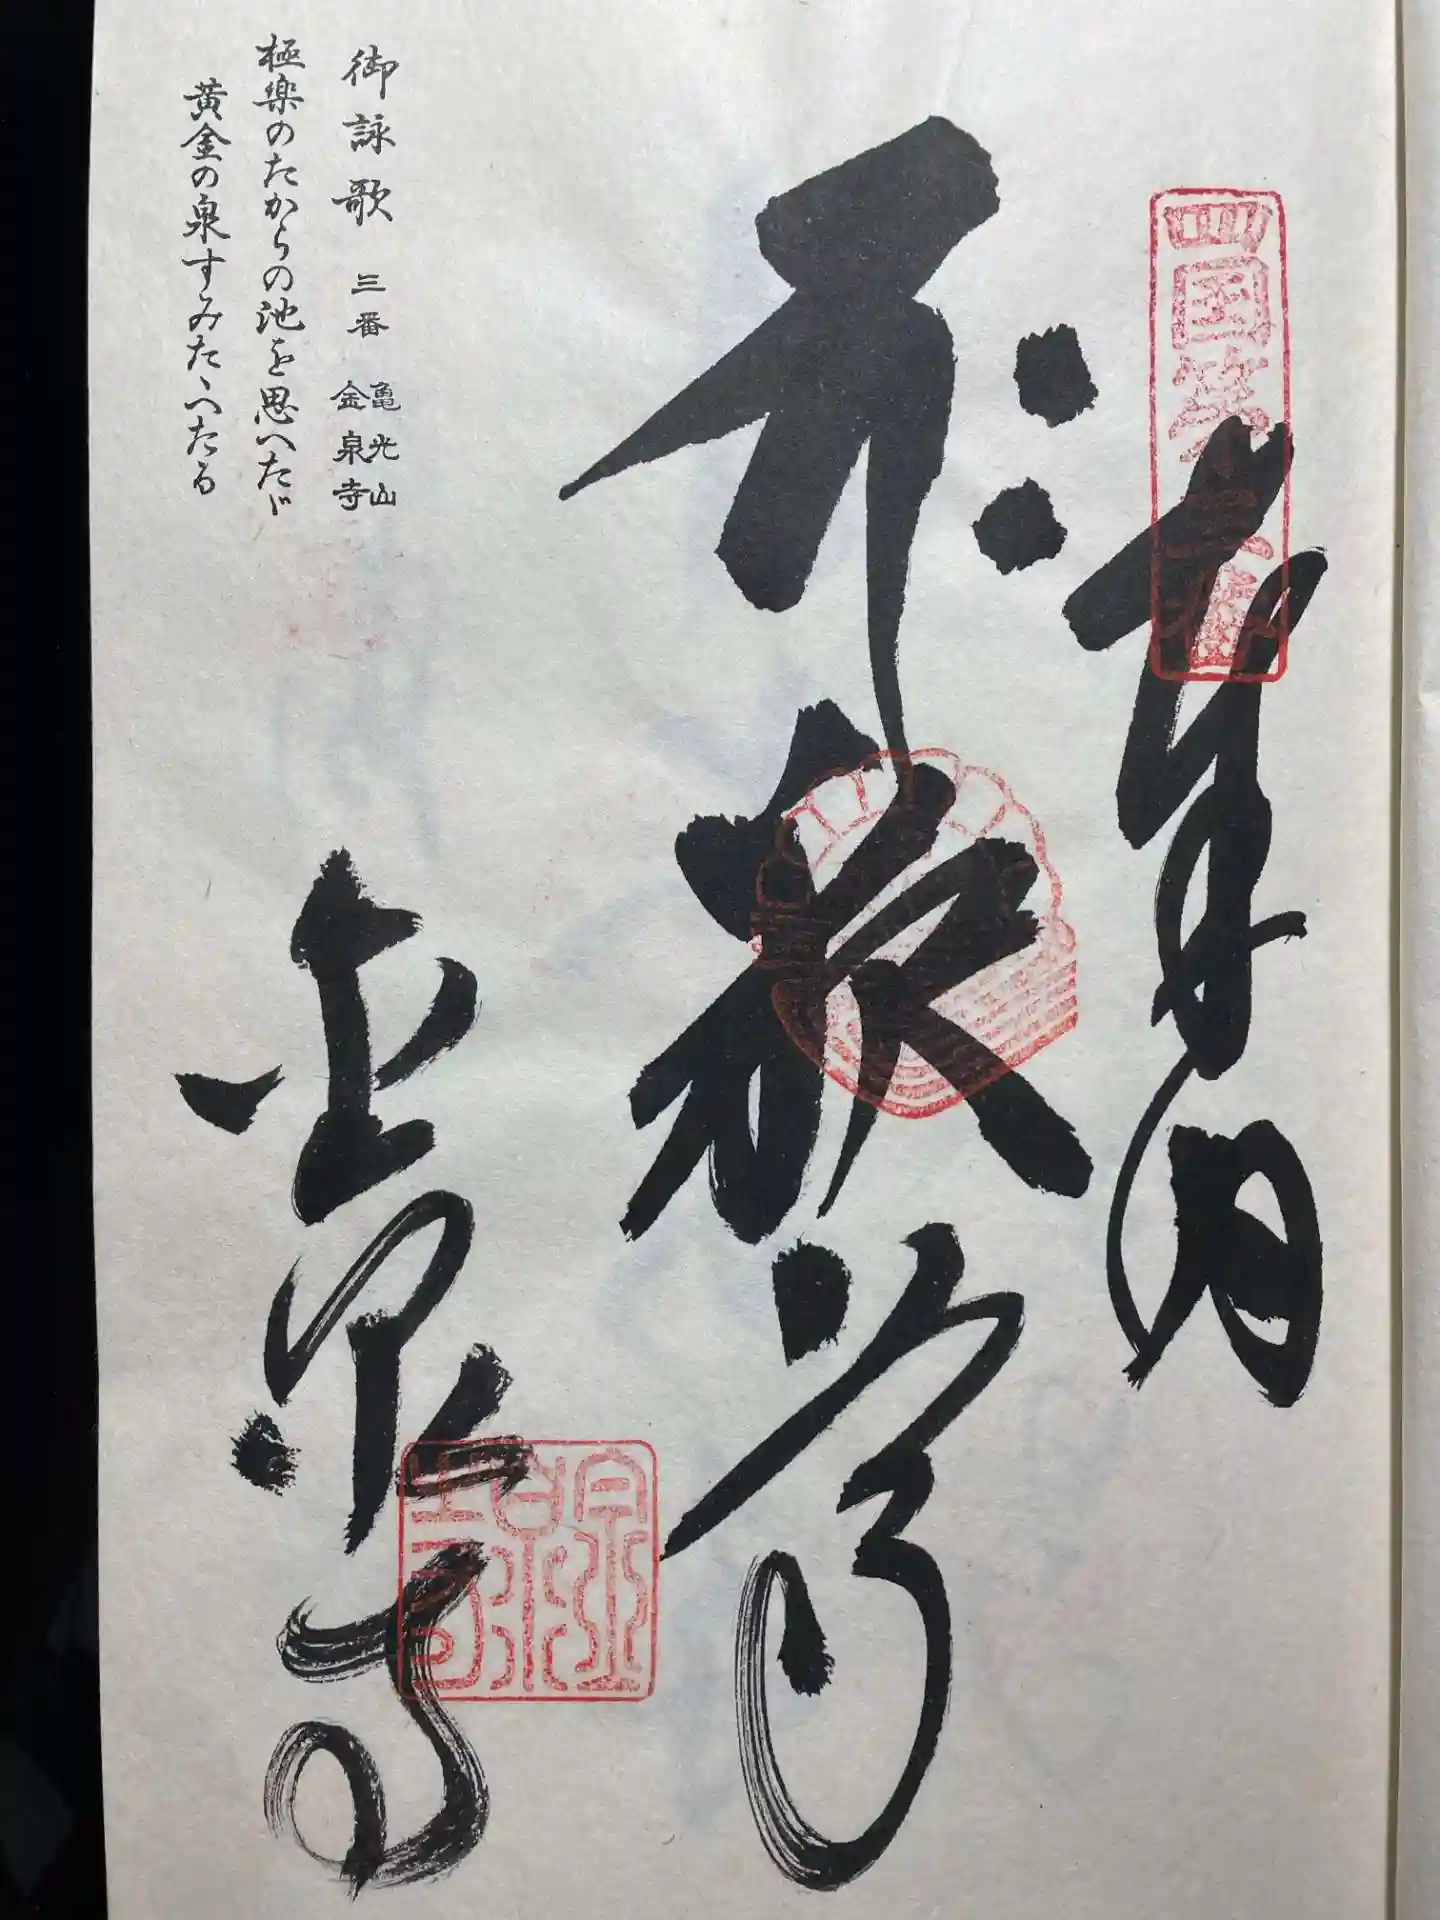 四国第三番
釈尊
金泉寺
金泉寺
御詠歌 三番 亀光山
金泉寺
極楽のたからの池を思へたゞ
黄金の泉すみたゝへたる